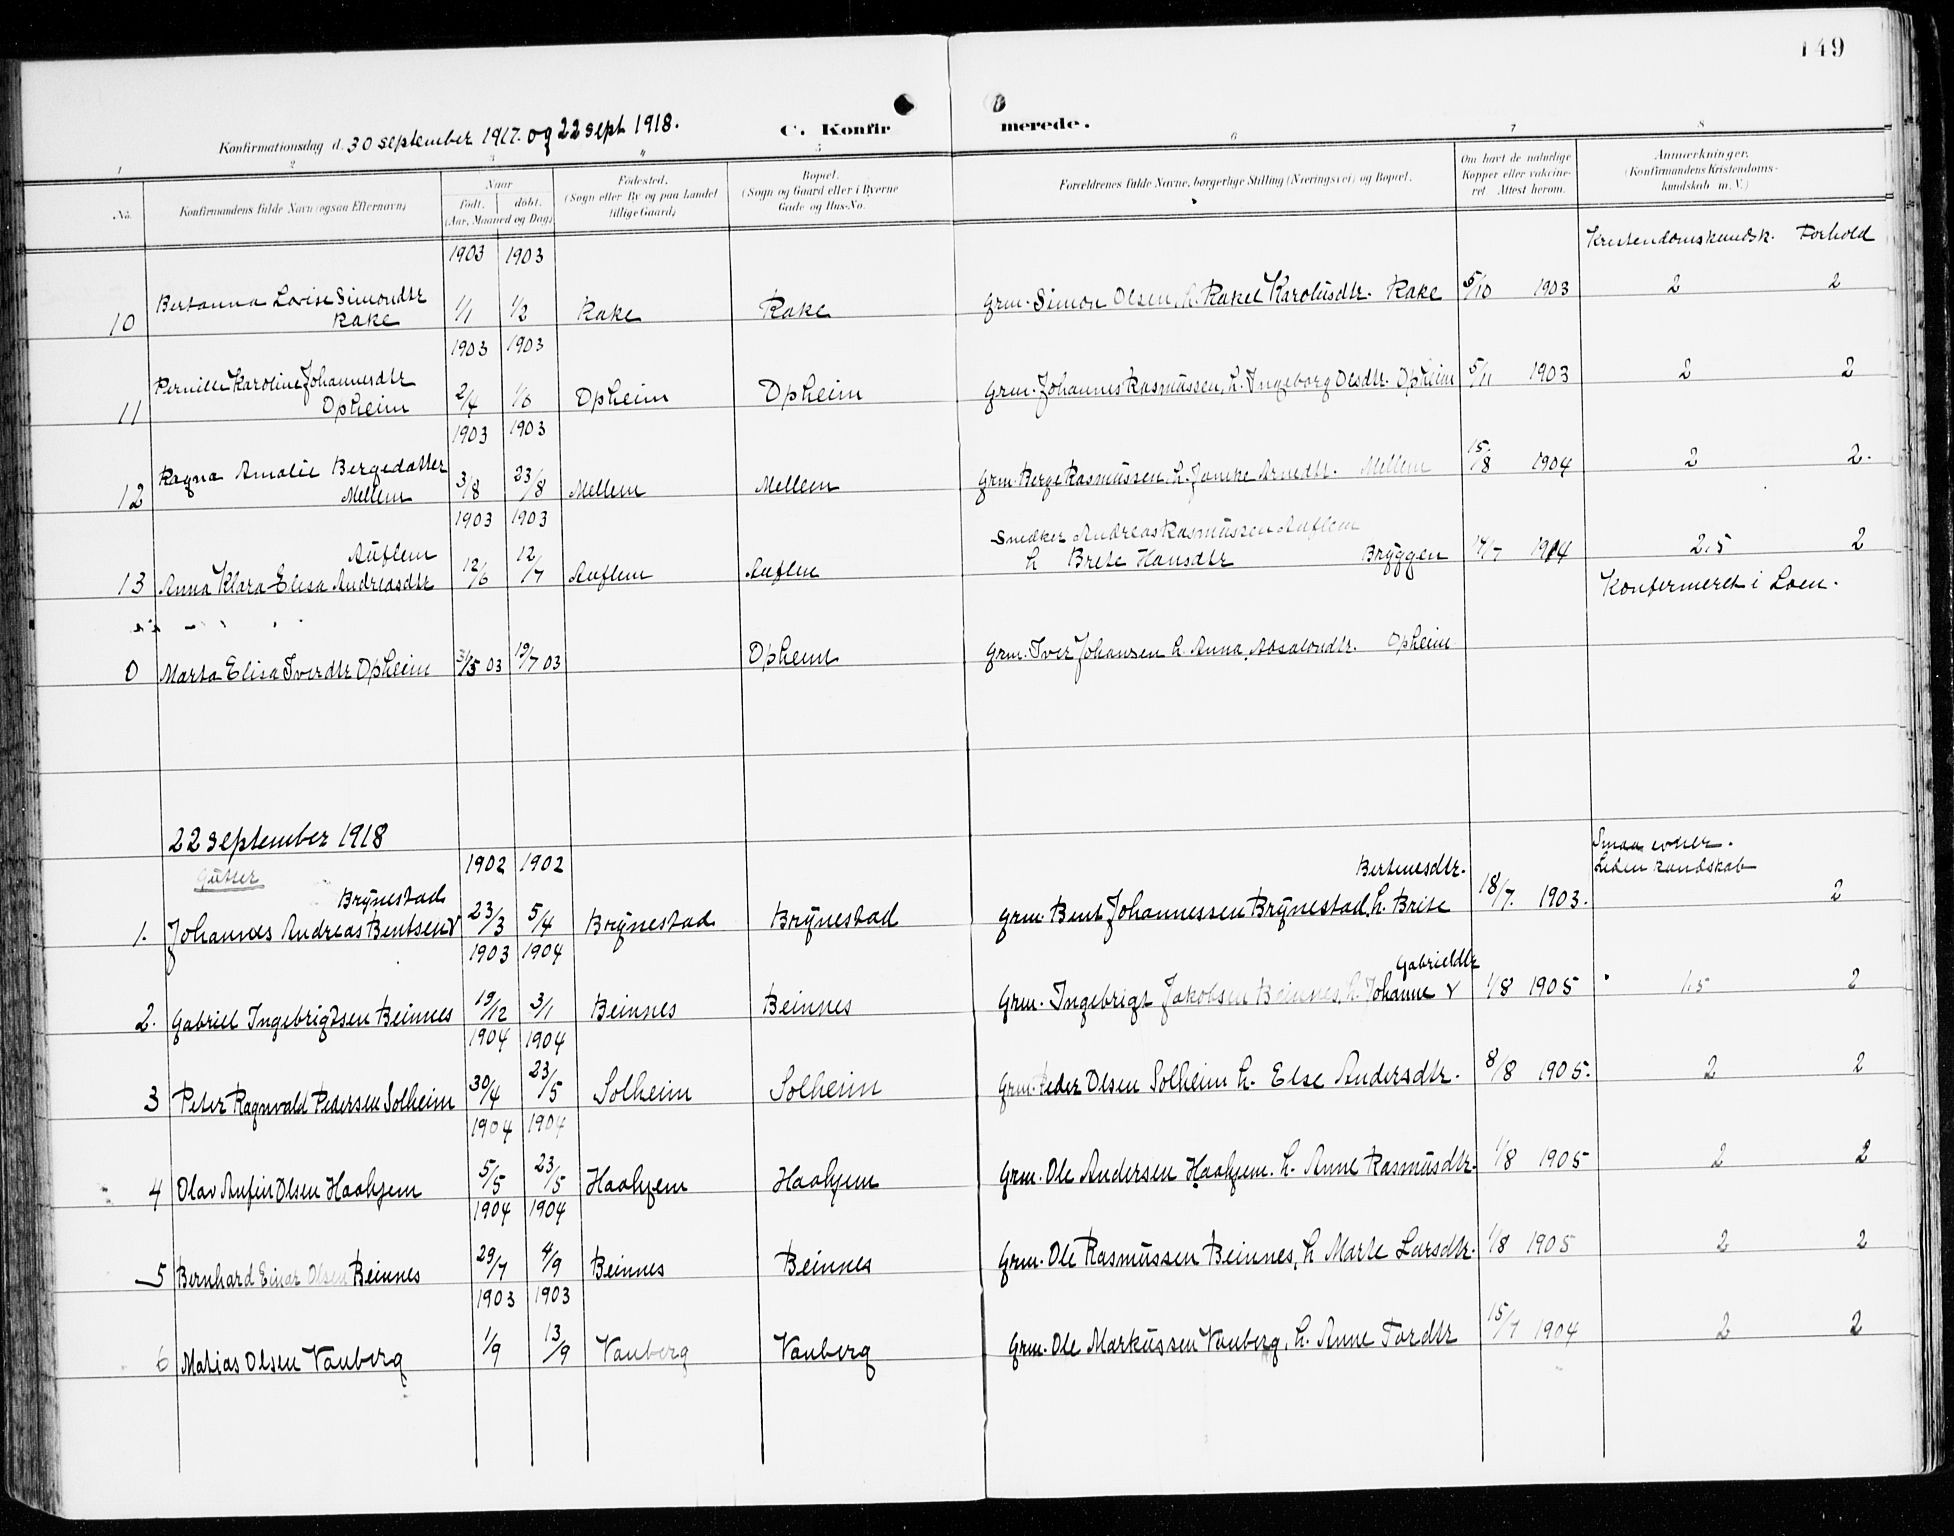 149
Konfirmationsdag d. 30 september 1917. og 22 sept 1918.
C. Konfir merede.
1 2 3 4 5 6 7 8
No. Konfirmandens fulde Navn (ogsaa Efternavn) Naar født. døbt. (Aar, Maaned og Dag) Fødested. (Sogn eller By og paa Landet tillige Gaard) Bopæl. (Sogn og Gaard eller i Byerne Gade og Hus-No. Forældrenes fulde Navne, borgerlige Stilling (Næringsvei) og Bopæl. Om havt de naturlige Kopper eller vaccineret Attest herom. Anmærkninger. (Konfirmandens Kristendomskundskab m. V.)
Kristendomskundsk. Forhold
1903 1903
10 Bertanna Lovise Simondtr Rake 1/1 1/2 Rake Rake Grm. Simon Olsen, h. Rakel Karolusdtr. Rake 5/10 1903 2 2
1903 1903
11 Pernille Karoline Johannesdtr Opheim 2/4 1/6 Opheim Opheim Grm. Johannes Rasmussen, h. Ingeborg Olsdtr. Opheim 5/11 1903 2 2
1903 1903
12 Ragna Amalie Bergedatter Mellem 3/8 23/8 Mellem Mellem Grm. Berge Rasmussen h. Jamke Arnedtr. Mellem 15/8 1904 2 2.
1903 1903
13 Anna Klara Elisa Andreasdtr Auflem 12/6 12/7 Auflem Auflem Snedker Andreas Rasmussen Auflem
h Brete Hansdtr Bryggen 17/7 1914 2,5 2
Konfermeret i Loen.
0 Marta Elisa Iverdtr Opheim 31/5 03 19/7 03 Opheim Grm. Iver Johansen h. Anna Absalondtr. Opheim
22 september 1918
Gutter
1902 1902
1. Johannes Andreas Bentsen Brynestad 23/3 5/4 Brynestad Brynestad Grm. Bent Johannessen Brynestad, h. Brite Bertinesdtr. 18/7. 1903. Smaa evner. Liden kundskab 2
1903 1904
2. Gabriel Ingebrigtsen Beinnes 19/12 3/1 Beinnes Beinnes Grm. Ingebrigt Jakobsen Beinnes, h. Johanne Gabrieldtr 1/8 1905 1,5 2
1904 1904
3 Peter Ragnvald Pedersen Solheim 30/4 23/5 Solheim Solheim Grm. Peder Olsen Solheim h. Else Andersdtr. 8/8 1905. 2 2
1904 1904
4 Olav Anfin Olsen Haahjem 5/5 23/5 Haahjem Haahjem Grm. Ole Andersen Haahjem. h. Anne Rasmusdtr. 1/8 1905 2 2
1904 1904
5 Bernhard Einar Olsen Beinnes 29/7 4/9 Beinnes Beinnes Grm. Ole Rasmussen Beinnes, h Marte Larsdtr. 1/8 1905 2 2
1903 1903
6 Matias Olsen Vanberg 1/9 13/9 Vanberg Vanberg Grm. Ole Markussen Vanberg, h. Anne Tordtr 15/7 1904 2 2